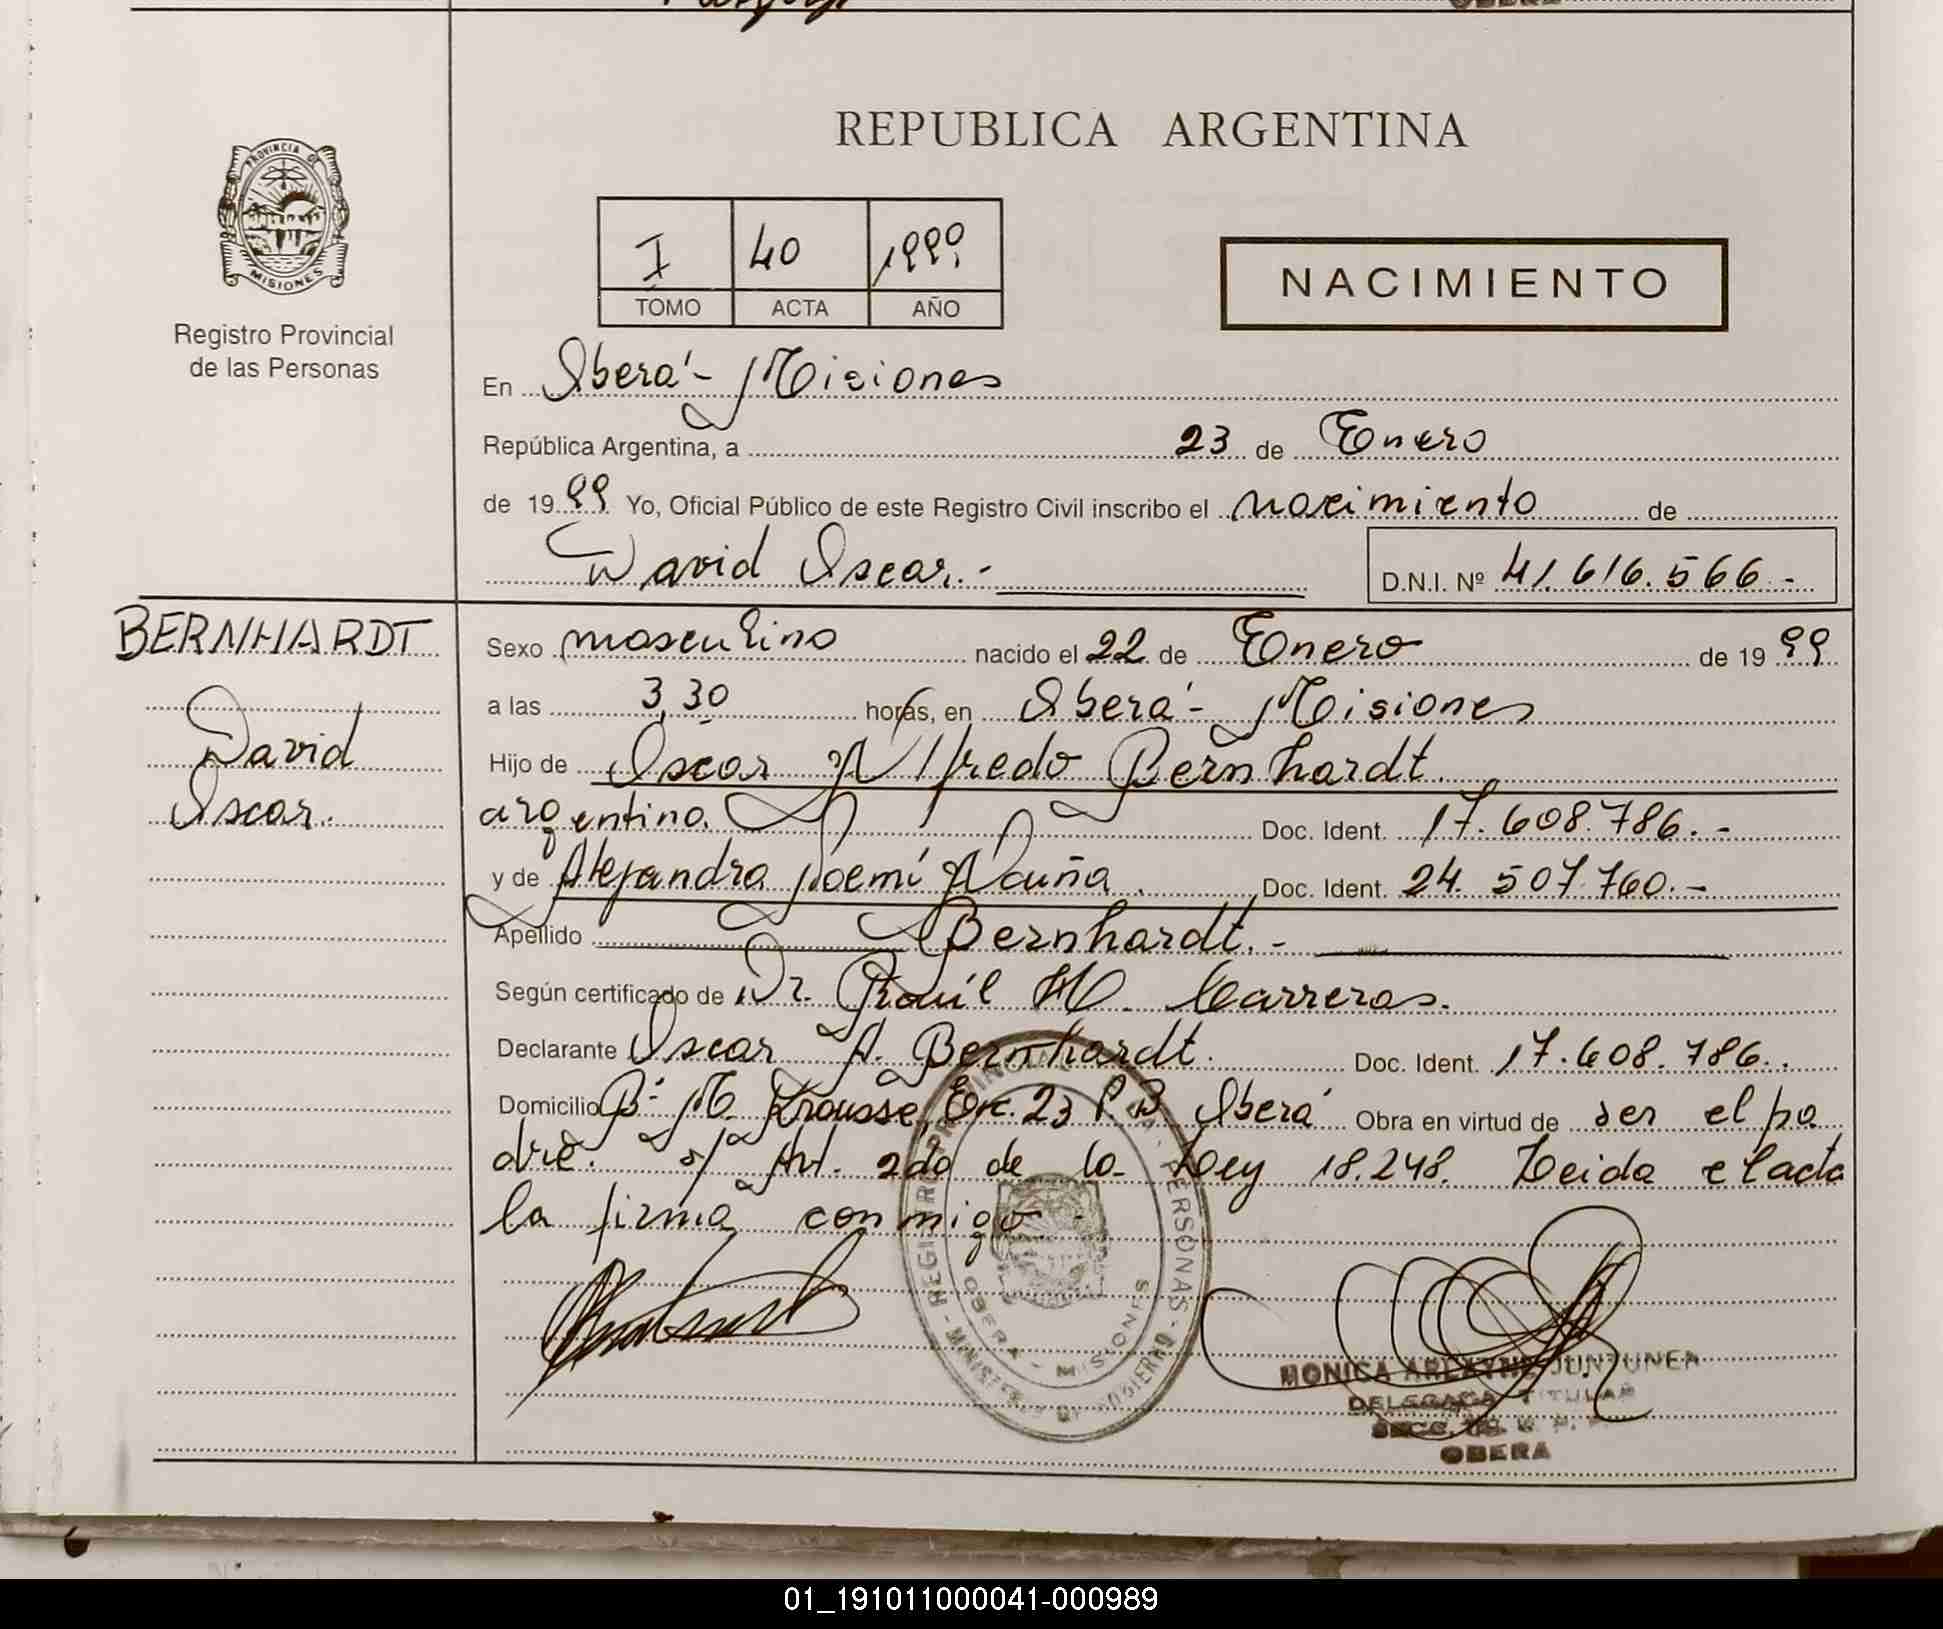 REPUBLICA ARGENTINA
PROVINCIA DE
MISIONES
Registro Provincial
de las Personas
I 40 1999
TOMO ACTA AÑO
NACIMIENTO
En Oberá - Misiones
República Argentina, a 23 de Enero
de 1999 Yo, Oficial Público de este Registro Civil inscribo el nacimiento de
David Oscar.-
D.N.I. Nº 41.616.566.-
BERNHARDT
David
Oscar.
Sexo masculino nacido el 22 de Enero de 1999
a las 3,30 horas, en Oberá - Misiones
Hijo de Oscar Alfredo Bernhardt.
argentino. Doc. Ident. 17.608.786.-
y de Alejandra Noemí Acuña. Doc. Ident. 24.507.760.-
Apellido Bernhardt.-
Según certificado de Dr. Raúl H. Carreras.
Declarante Oscar A. Bernhardt. Doc. Ident. 17.608.786.
Domicilio Bº M. Krausse, 23 P.B. Oberá Obra en virtud de ser el pa
dre. s/ Art. 2do de la Ley 18.248. Leida el acta
la firma conmigo.-
REGISTRO PROVINCIAL DE LAS PERSONAS - MINISTERIO DE GOBIERNO -
OBERA - MISIONES
MONICA ARLAYNE JUNTUNEN
DELEGADA TITULAR
OBERA
01_191011000041-000989